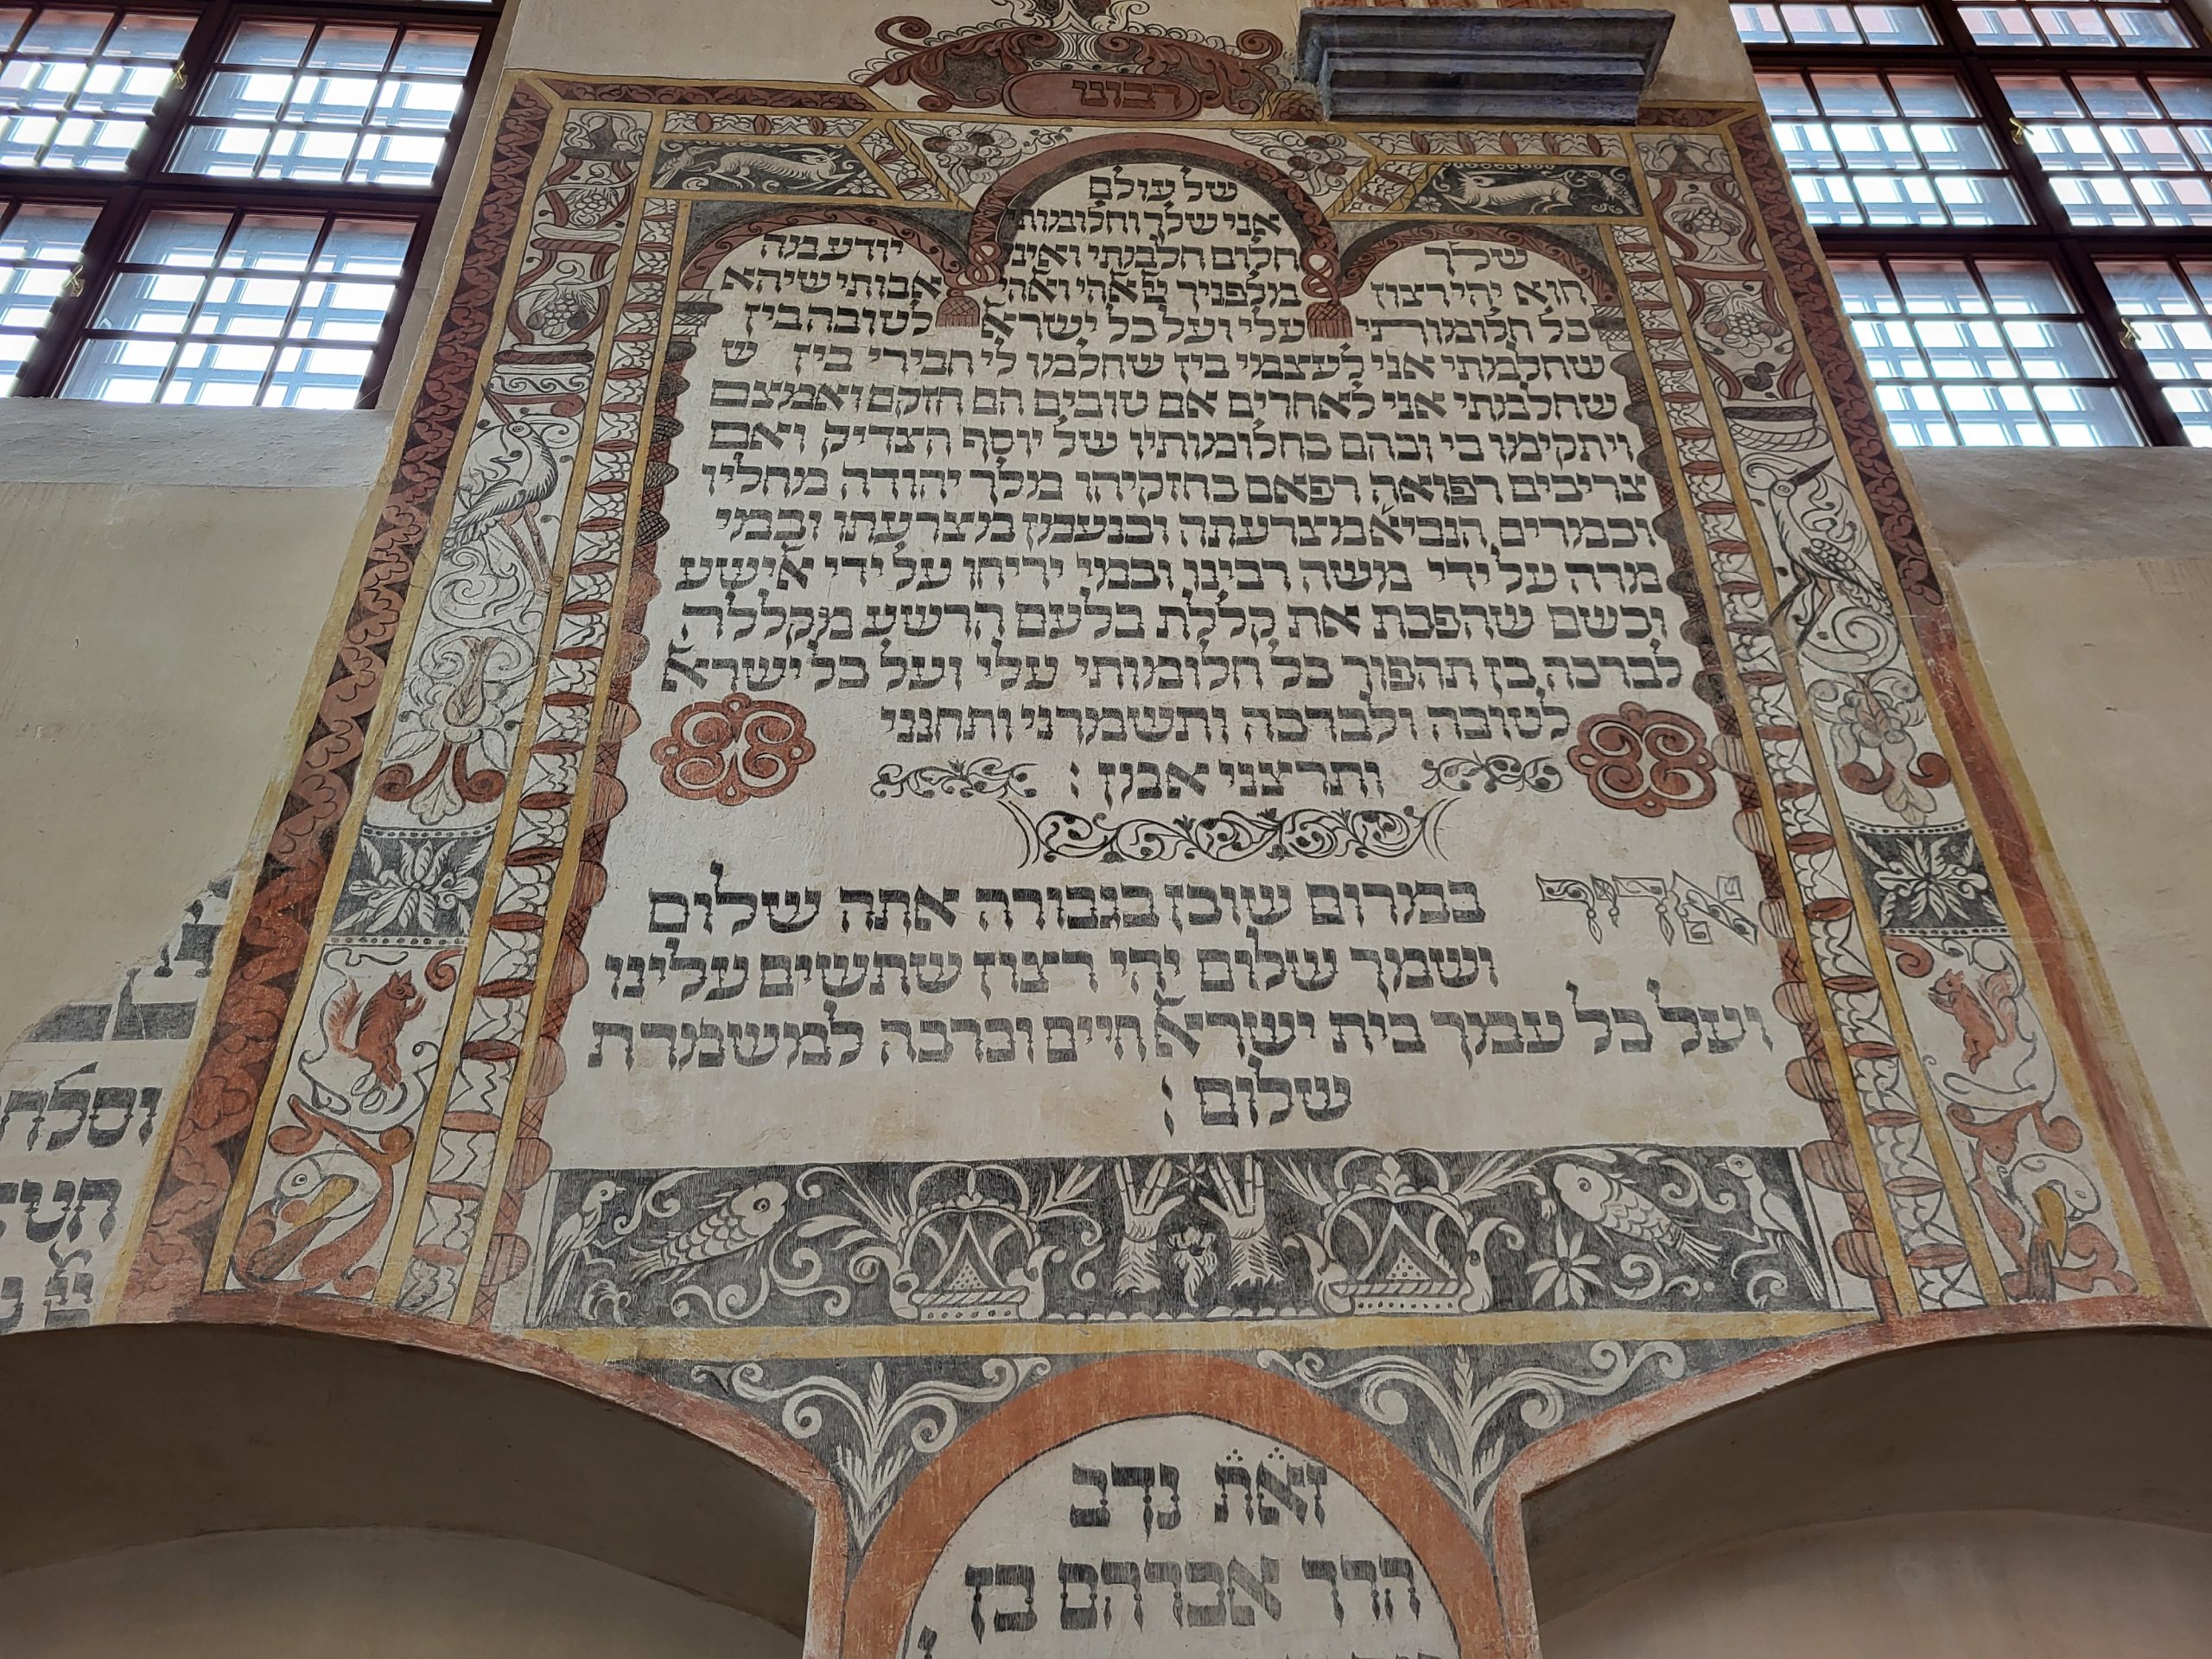 רבוני
של עולם
אני שלך וחלומותי
שלך חלום חלמתי ואינ יודע מה
הוא יהי רצון מלפניך אבותי שיהא
כל חלומותי עלי ועל כל ישרא לטובה בין
שחלמתי אני לעצמי בין שחלמו לי חבירי בין ש
שחלמתי אני לאחרים אם טובים הם חזקם ואמצם
ויתקימו בי ובהם כחלומותיו של יוסף הצדיק ואם
צריכים רפואה רפאם כחזקיהו מלך יהודה מחליו
וכמרים הנביא מצרעתה וכנעמן מצרעתו וכמי
מרה על ידי משה רבינו וכמי יריחו על ידי אישע
וכשם שהפכת את קללת בלעם הרשע מקללה
לברכה כן תהפוך כל חלומותי עלי ועל כל ישרא
לטובה ולברכה ותשמרני ותחנני
ותרצני אמן :
אדיר במרום שוכן בגבורה אתה שלום
ושמך שלום יהי רצון שתשים עלינו
ועל כל עמך בית ישרא חיים וברכה למשמרת
שלום :
זאת נדב
הרר אברהם בן